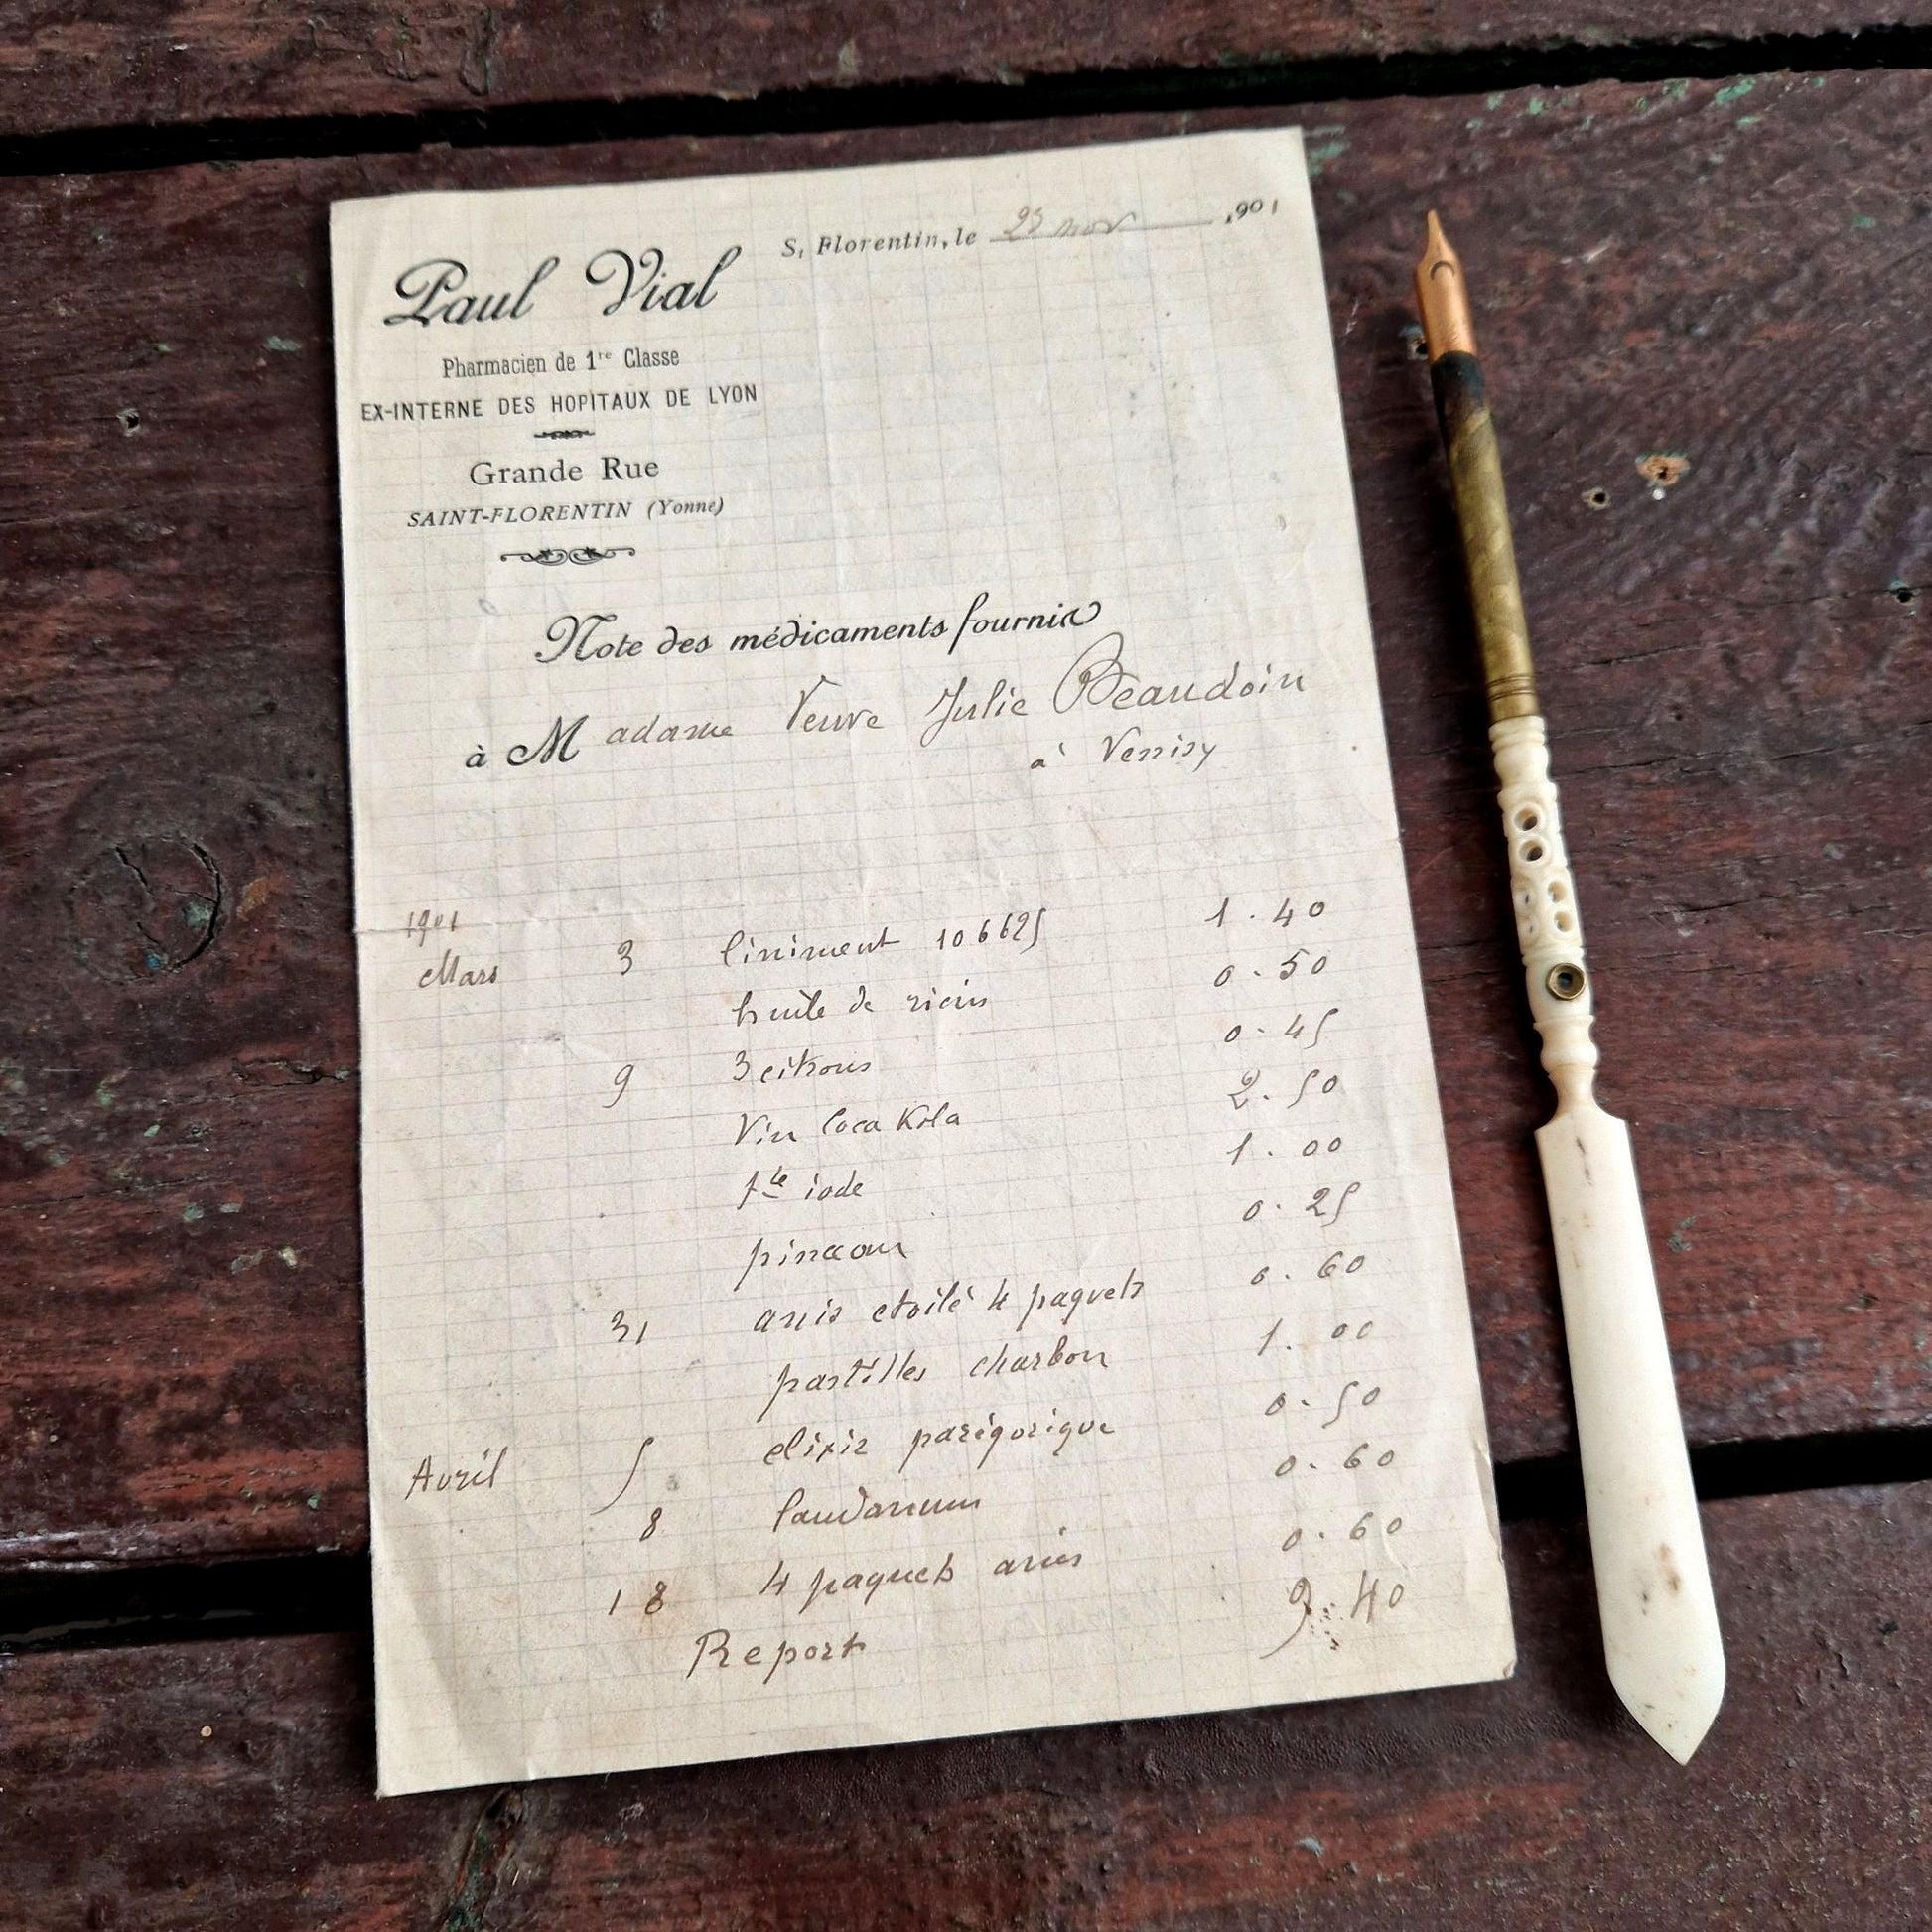 S, Florentin, le 23 nov 1901
Paul Vial
Pharmacien de 1re Classe
EX-INTERNE DES HOPITAUX DE LYON
Grande Rue
SAINT-FLORENTIN (Yonne)
Note des médicaments fournis
à Madame Veuve Julie Beaudoin
à Venisy
1901
Mars 3 liniment 106625 1.40
huile de ricin 0.50
9 3 citrons 0.45
Vin Coca Kola 2.50
tre iode 1.00
pinceau 0.25
31 anis etoilé 4 paquets 0.60
pastilles charbon 1.00
Avril 5 elixir parégorique 0.50
8 laudanum 0.60
18 4 paquets anis 0.60
Report 9.40